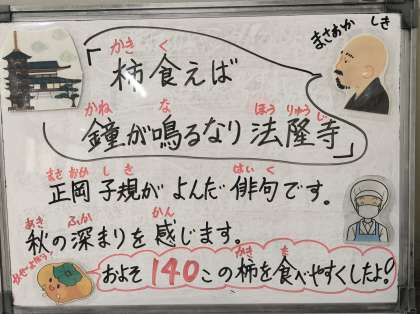 まさおか しき
「柿食えば
かき く
鐘が鳴るなり 法隆寺」
かね な ほう りゅう じ
正岡子規が よんだ 俳句です。
まさ おか し き はい く
秋の深まりを 感じます。
あき ふか かん
およそ 140この 柿を 食べやすくしたよ!
かき た